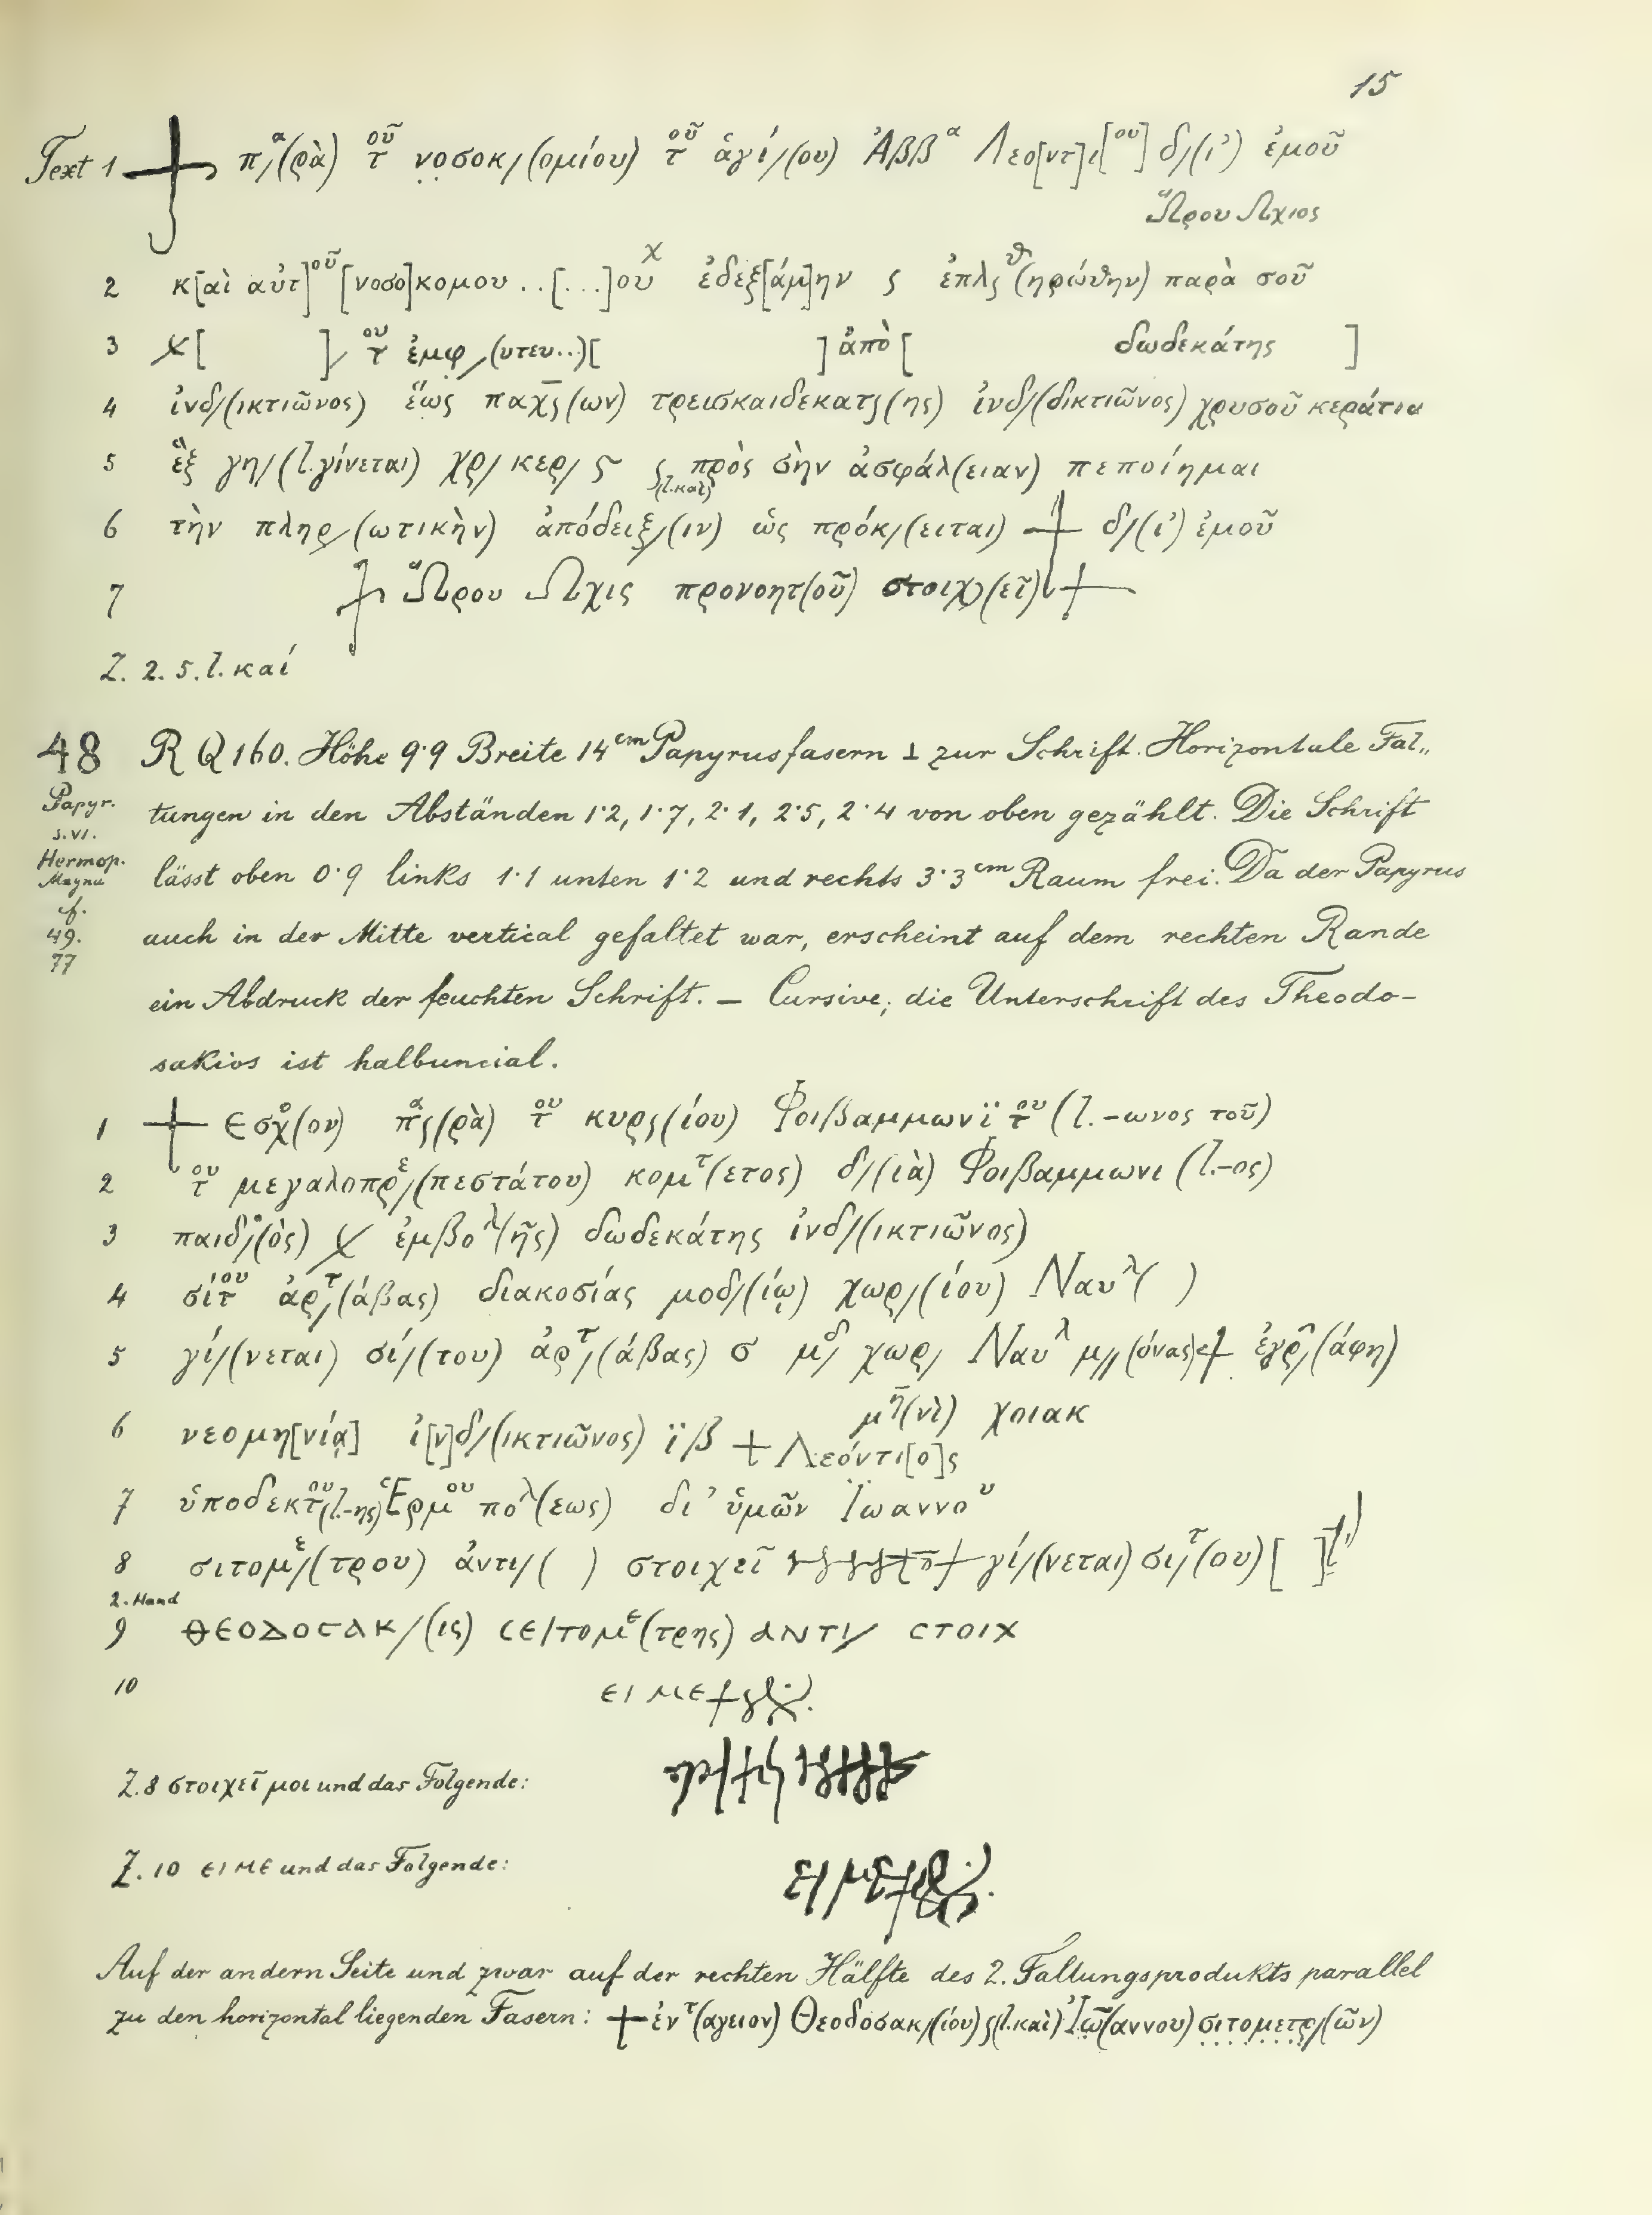 15
Text 1 π/ᾳ(ρὰ) τοῦ νοσοκ/(ομίου) τοῦ ἁγί/(ου) Ἀββα Λεο[ντ]ι[ου] δ/(ι’) ἐμοῦ
Ὥρου Ωχιος
2 κ[αὶ αὐτ]οῦ [νοσο]κομου . . [. . .]ουχ ἐδεξ[άμ]ην ς ἐπλςθ(ηρώθην) παρὰ σοῦ
3 [ ]/ τοῦ ἐμφ/(υτευ..)[ ] ἀπὸ [ δωδεκάτης ]
4 ἰνδ/(ικτιῶνος) ἕως παχς(ων) τρεισκαιδεκατς(ης) ἰνδ/(δικτιῶνος) χρυσοῦ κεράτια
5 ἓξ γη/(l. γίνεται) χρ/ κερ/ ς ς (l. καὶ) πρὸς σὴν ἀσφάλ(ειαν) πεποίημαι
6 τὴν πληρ/(ωτικὴν) ἀπόδειξ/(ιν) ὡς πρόκ/(ειται) + δ/(ι’) ἐμοῦ
7 + Ὥρου Ωχις προνοητ(οῦ) στοιχ(εῖ) +
Z. 2. 5. l. καί
48 R Q 160. Höhe 9·9 Breite 14 cm Papyrusfasern ⊥ zur Schrift. Horizontale Fal„
Papyr. tungen in den Abständen 1·2, 1·7, 2·1, 2·5, 2·4 von oben gezählt. Die Schrift
s. VI.
Hermop. lässt oben 0·9 links 1·1 unten 1·2 und rechts 3·3 cm Raum frei. Da der Papyrus
Magna
cf.
49. auch in der Mitte vertical gefaltet war, erscheint auf dem rechten Rande
77
ein Abdruck der feuchten Schrift. – Cursive; die Unterschrift des Theodo-
sakios ist halbuncial.
1 + Εσχο(ον) πας(ρὰ) του κυρς(ίου) Φοιβαμμωνϊ του (l. -ωνος τοῦ)
2 του μεγαλοπρε/(πεστάτου) κομτ(ετος) δ/(ιὰ) Φοιβαμμωνι (l. -ος)
3 παιδ/(ὸς) ἐμβολ(ῆς) δωδεκάτης ἰνδ/(ικτιῶνος)
4 σίτου ἀρτ/(άβας) διακοσίας μοδ/(ίῳ) χωρ/(ίου) Ναυλ( )
5 γί/(νεται) σί/(του) ἀρτ/(άβας) σ μδ/ χωρ/ Ναυλ μ//(όνας) + ἐγρ/(άφη)
μη(νὶ) χοιακ
6 νεομη[νίᾳ] ἰ[ν]δ/(ικτιῶνος) ϊβ + Λεόντι[ο]ς
7 ὑποδεκτου(l. -ης) Ἑρμουπολ(εως) δι’ ὑμῶν Ϊωαννου
8 σιτομε/(τρου) ἀντι/( ) στοιχεῖ γί/(νεται) σίτ/(ου) [ ]
2. Hand
9 ΘΕΟΔΟCΑΚ/(ις) CΕΙΤΟΜε(τρης) ΑΝΤΙ/ CΤΟΙΧ
10 ΕΙ ΜΕ
Z. 8 στοιχεῖ μοι und das Folgende:
Z. 10 ΕΙ ΜΕ und das Folgende:
Auf der andern Seite und zwar auf der rechten Hälfte des 2. Faltungsprodukts parallel
zu den horizontal liegenden Fasern: + ἐντ(αγιον) Θεοδοσακ/(ίου) ς (l. καὶ) Ἰω(αννου) σιτομετρ/(ῶν)